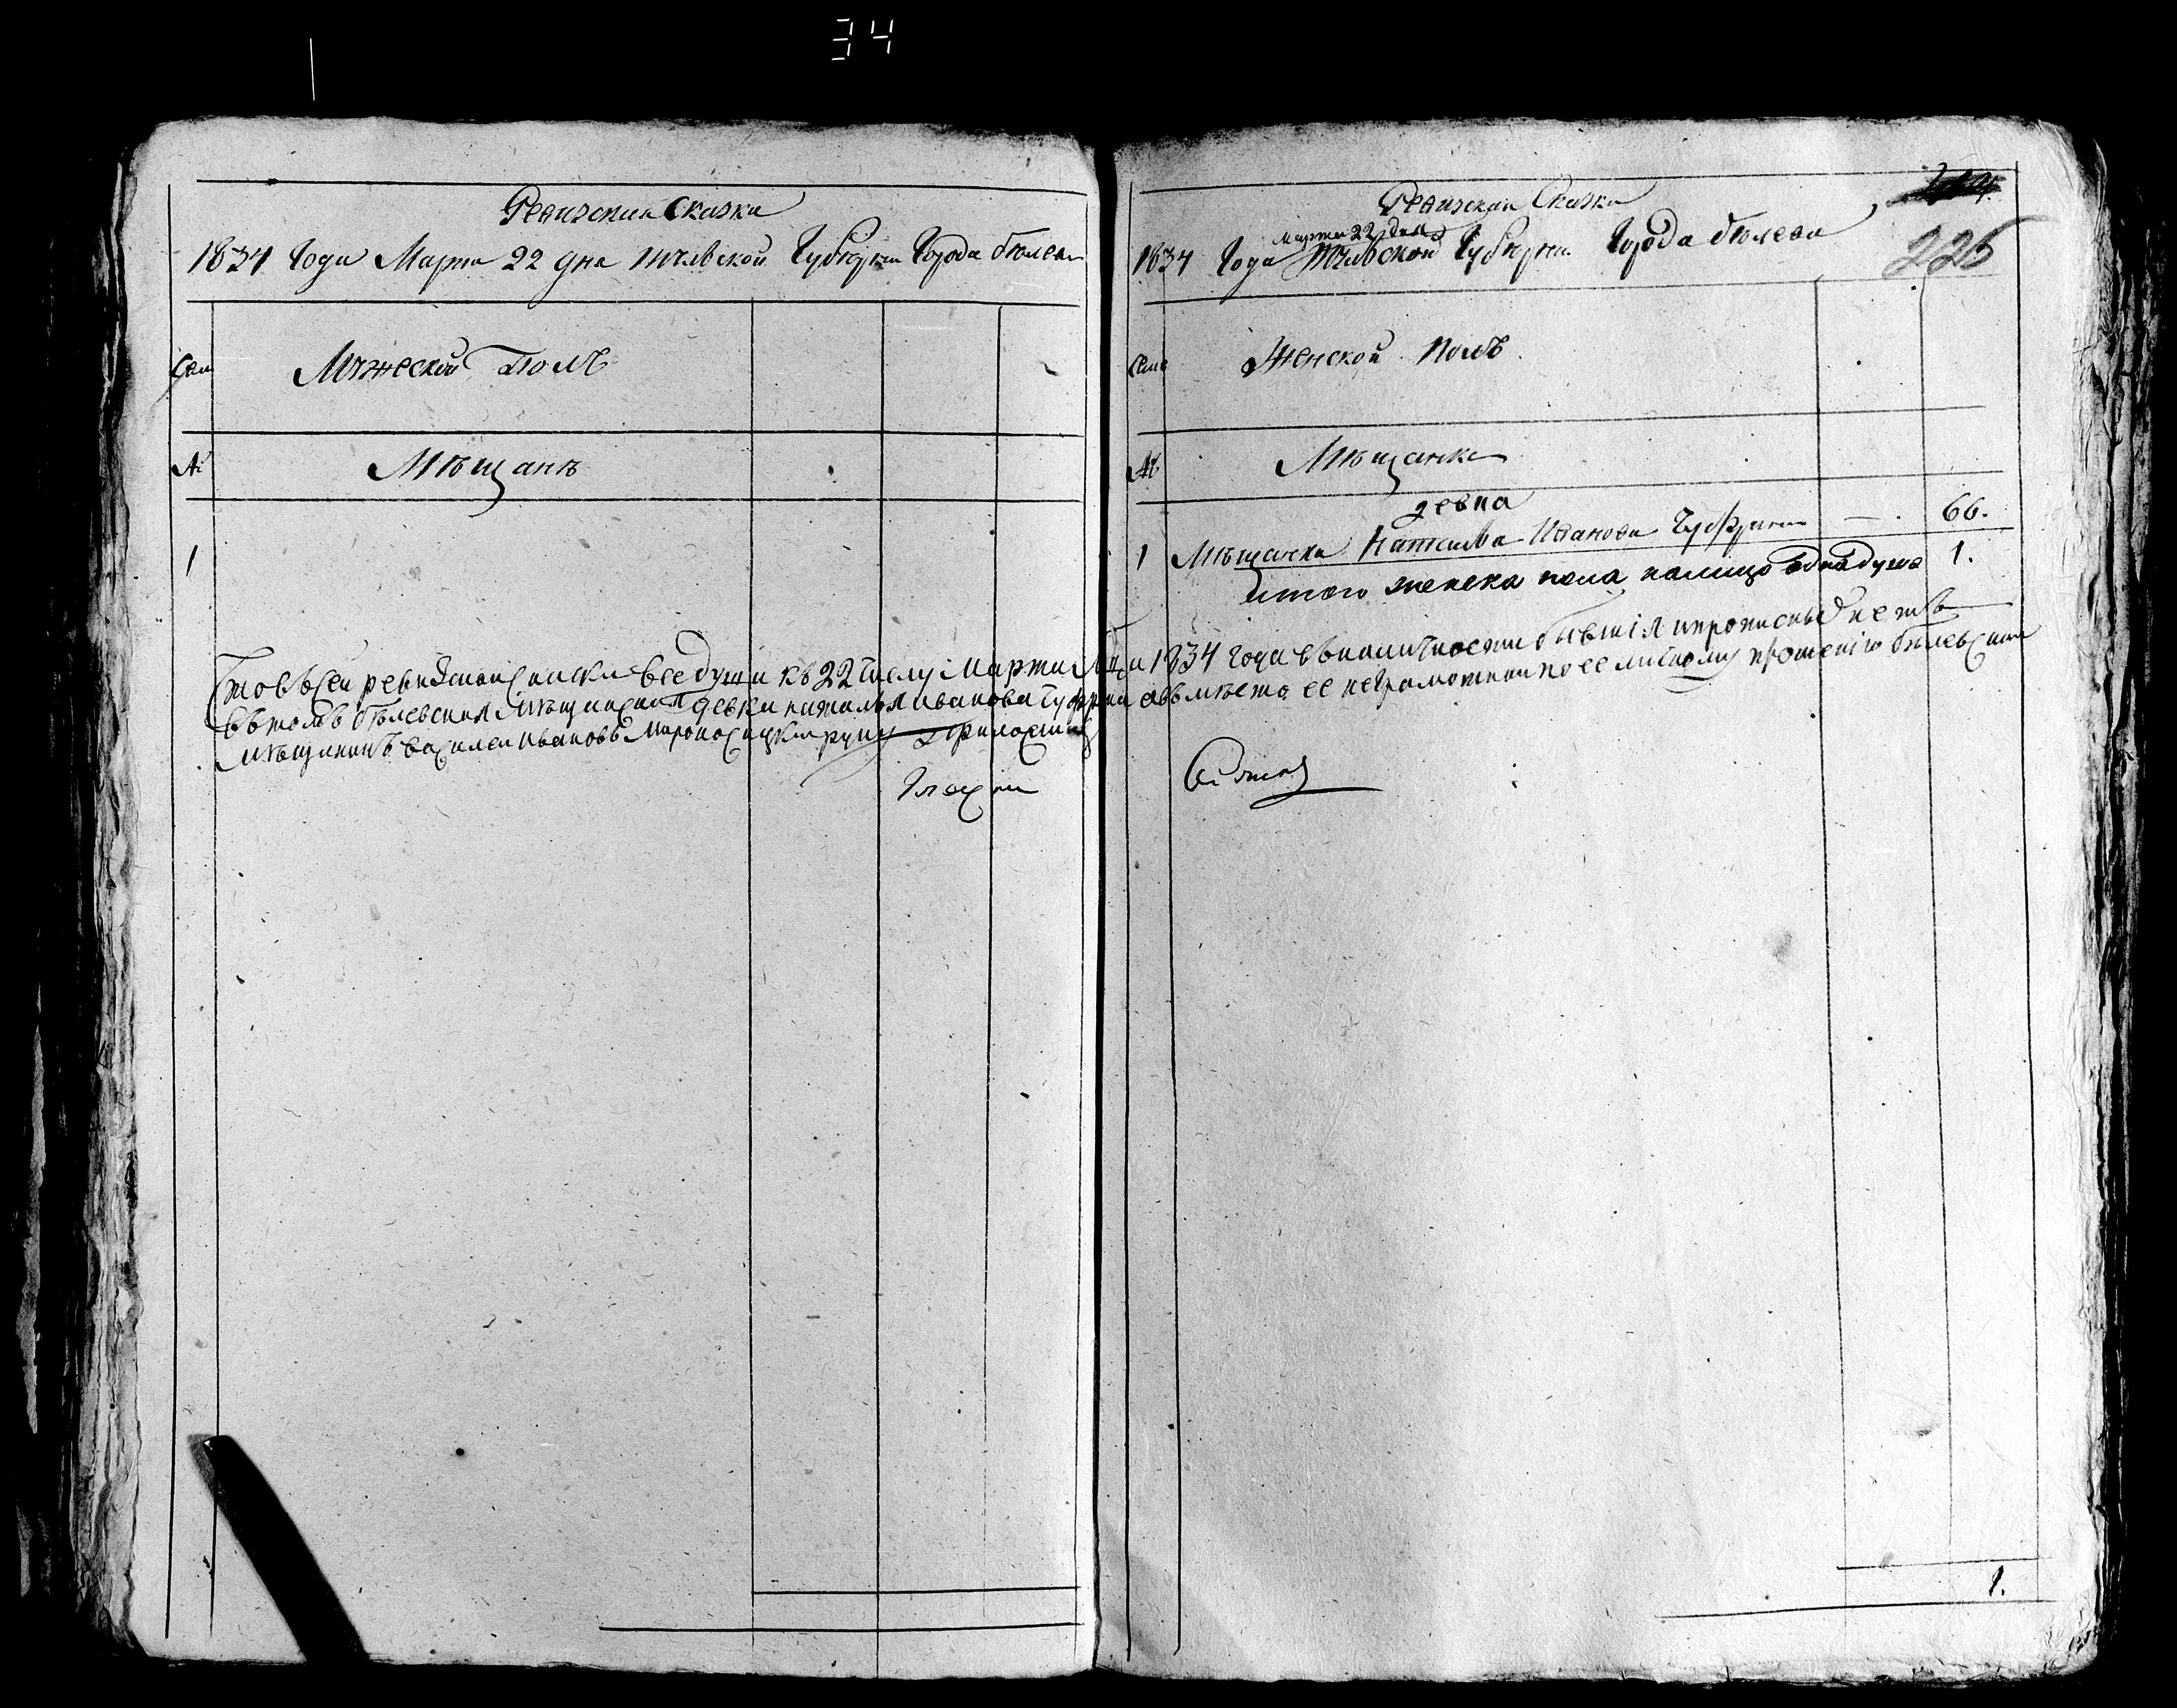 34
Ревизская Сказка
1834 Года Марта 22 дня Тульской Губернии Города Белева
Сем
Мужеской Полъ
№
Мѣщанъ
1
Ревизская Сказка
224
226
марта 22 дня
1834 Года Тульской Губернии Города Белева
Семе
Женской Полъ
№
Мѣщанка
девка
1 Мѣщанка Наталья Иванова — 66.
итого женска пола налицо одна душа 1.
Что въ сей ревизской скаски все души къ 22 числу Марта 1834 года въ наличности бывшiя и прописныхъ нетъ
въ томъ белевская мѣщанская девка наталья иванова а вместо ее неграмотной по ее личному прошению белевский
мѣщининъ василей ивановъ руку приложилъ
Гласный
1.